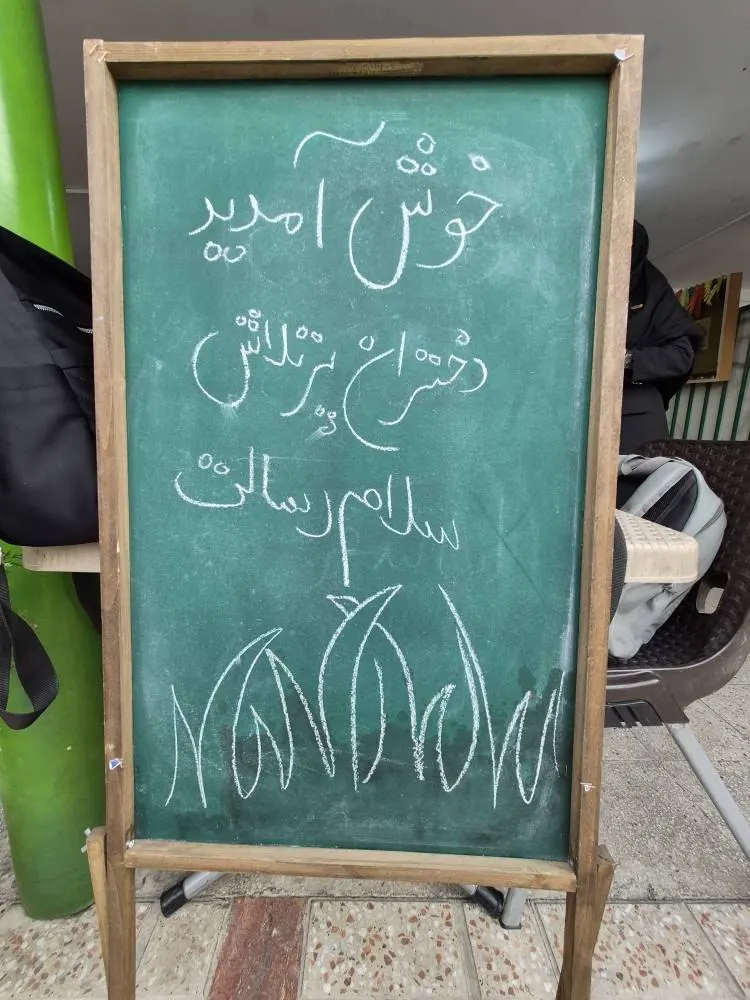 خوش آمدید
دختران پرتلاش
سلام رسالت